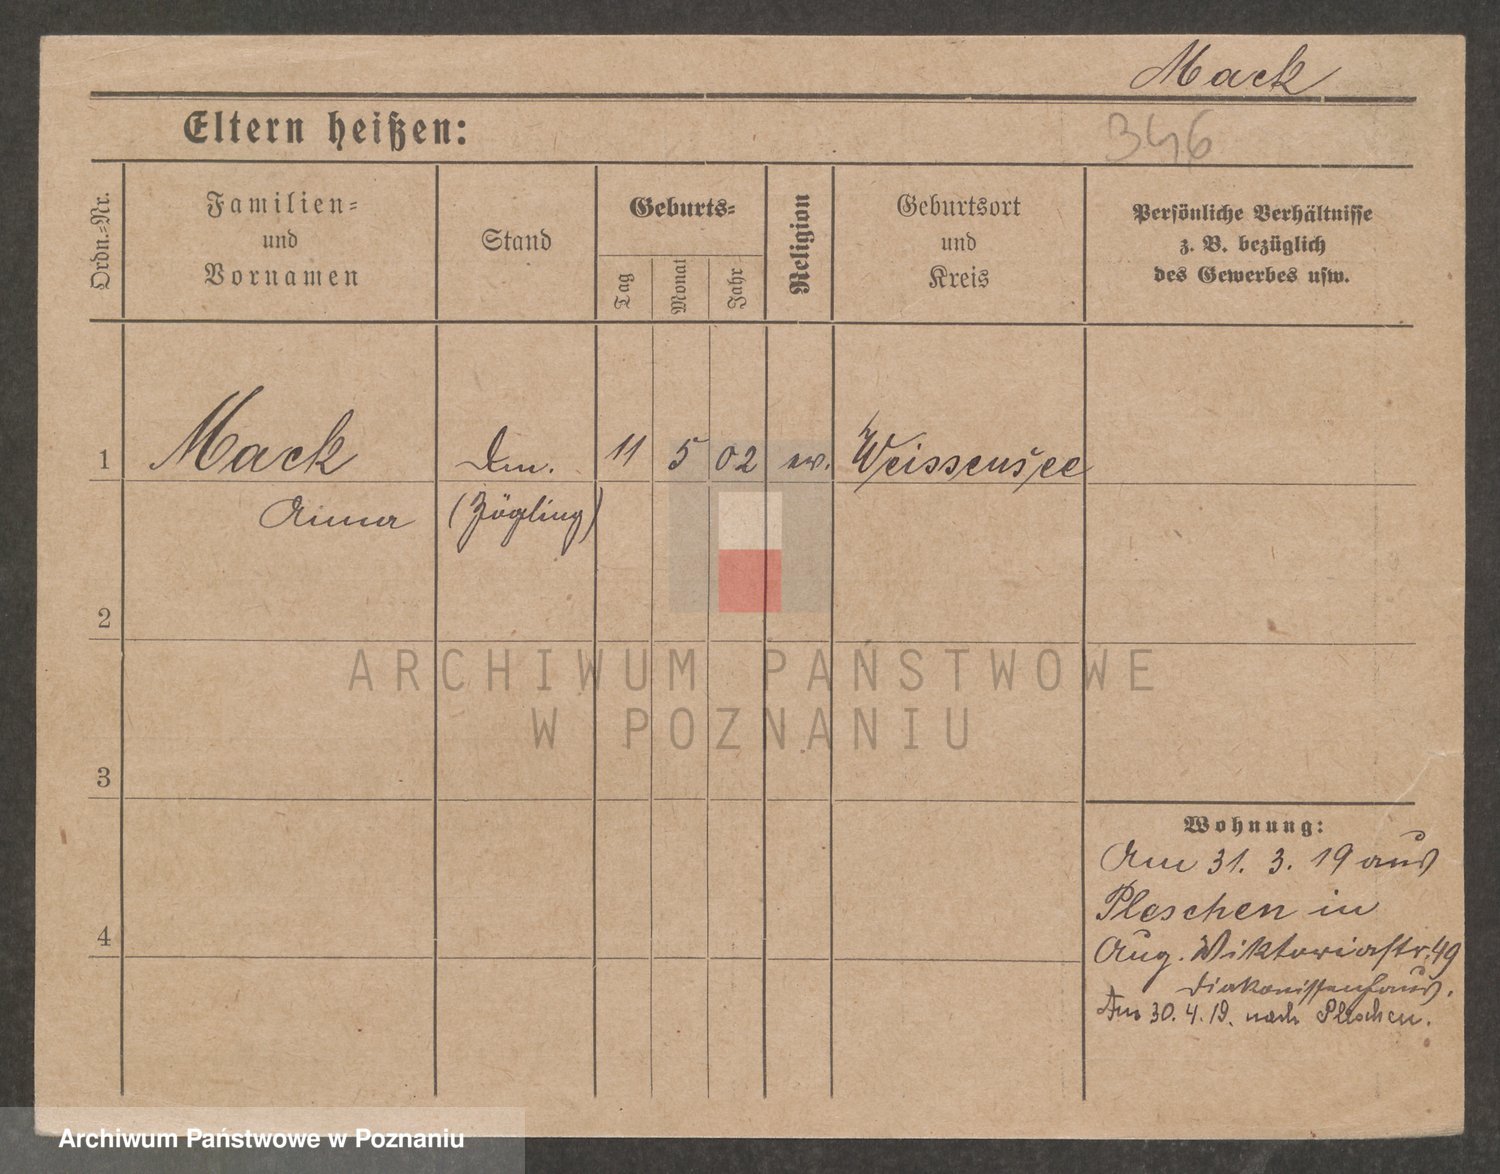 Mack
Eltern heißen:
346
Ordn.=Nr.
Familien=
und
Vornamen
Stand
Geburts=
Tag
Monat
Jahr
Religion
Geburtsort
und
Kreis
Persönliche Verhältnisse
z. B. bezüglich
des Gewerbes usw.
1 Mack 11 5 02 ev. Weissensee
Anna (Zögling)
2
ARCHIWUM PAŃSTWOWE
W POZNANIU
3
Wohnung:
Am 31. 3. 19 aus
Pleschen in
4
Aug. Wiktoriastr. 49
Diakonissenhaus.
Am 30. 4. 19. nach Pleschen.
Archiwum Państwowe w Poznaniu